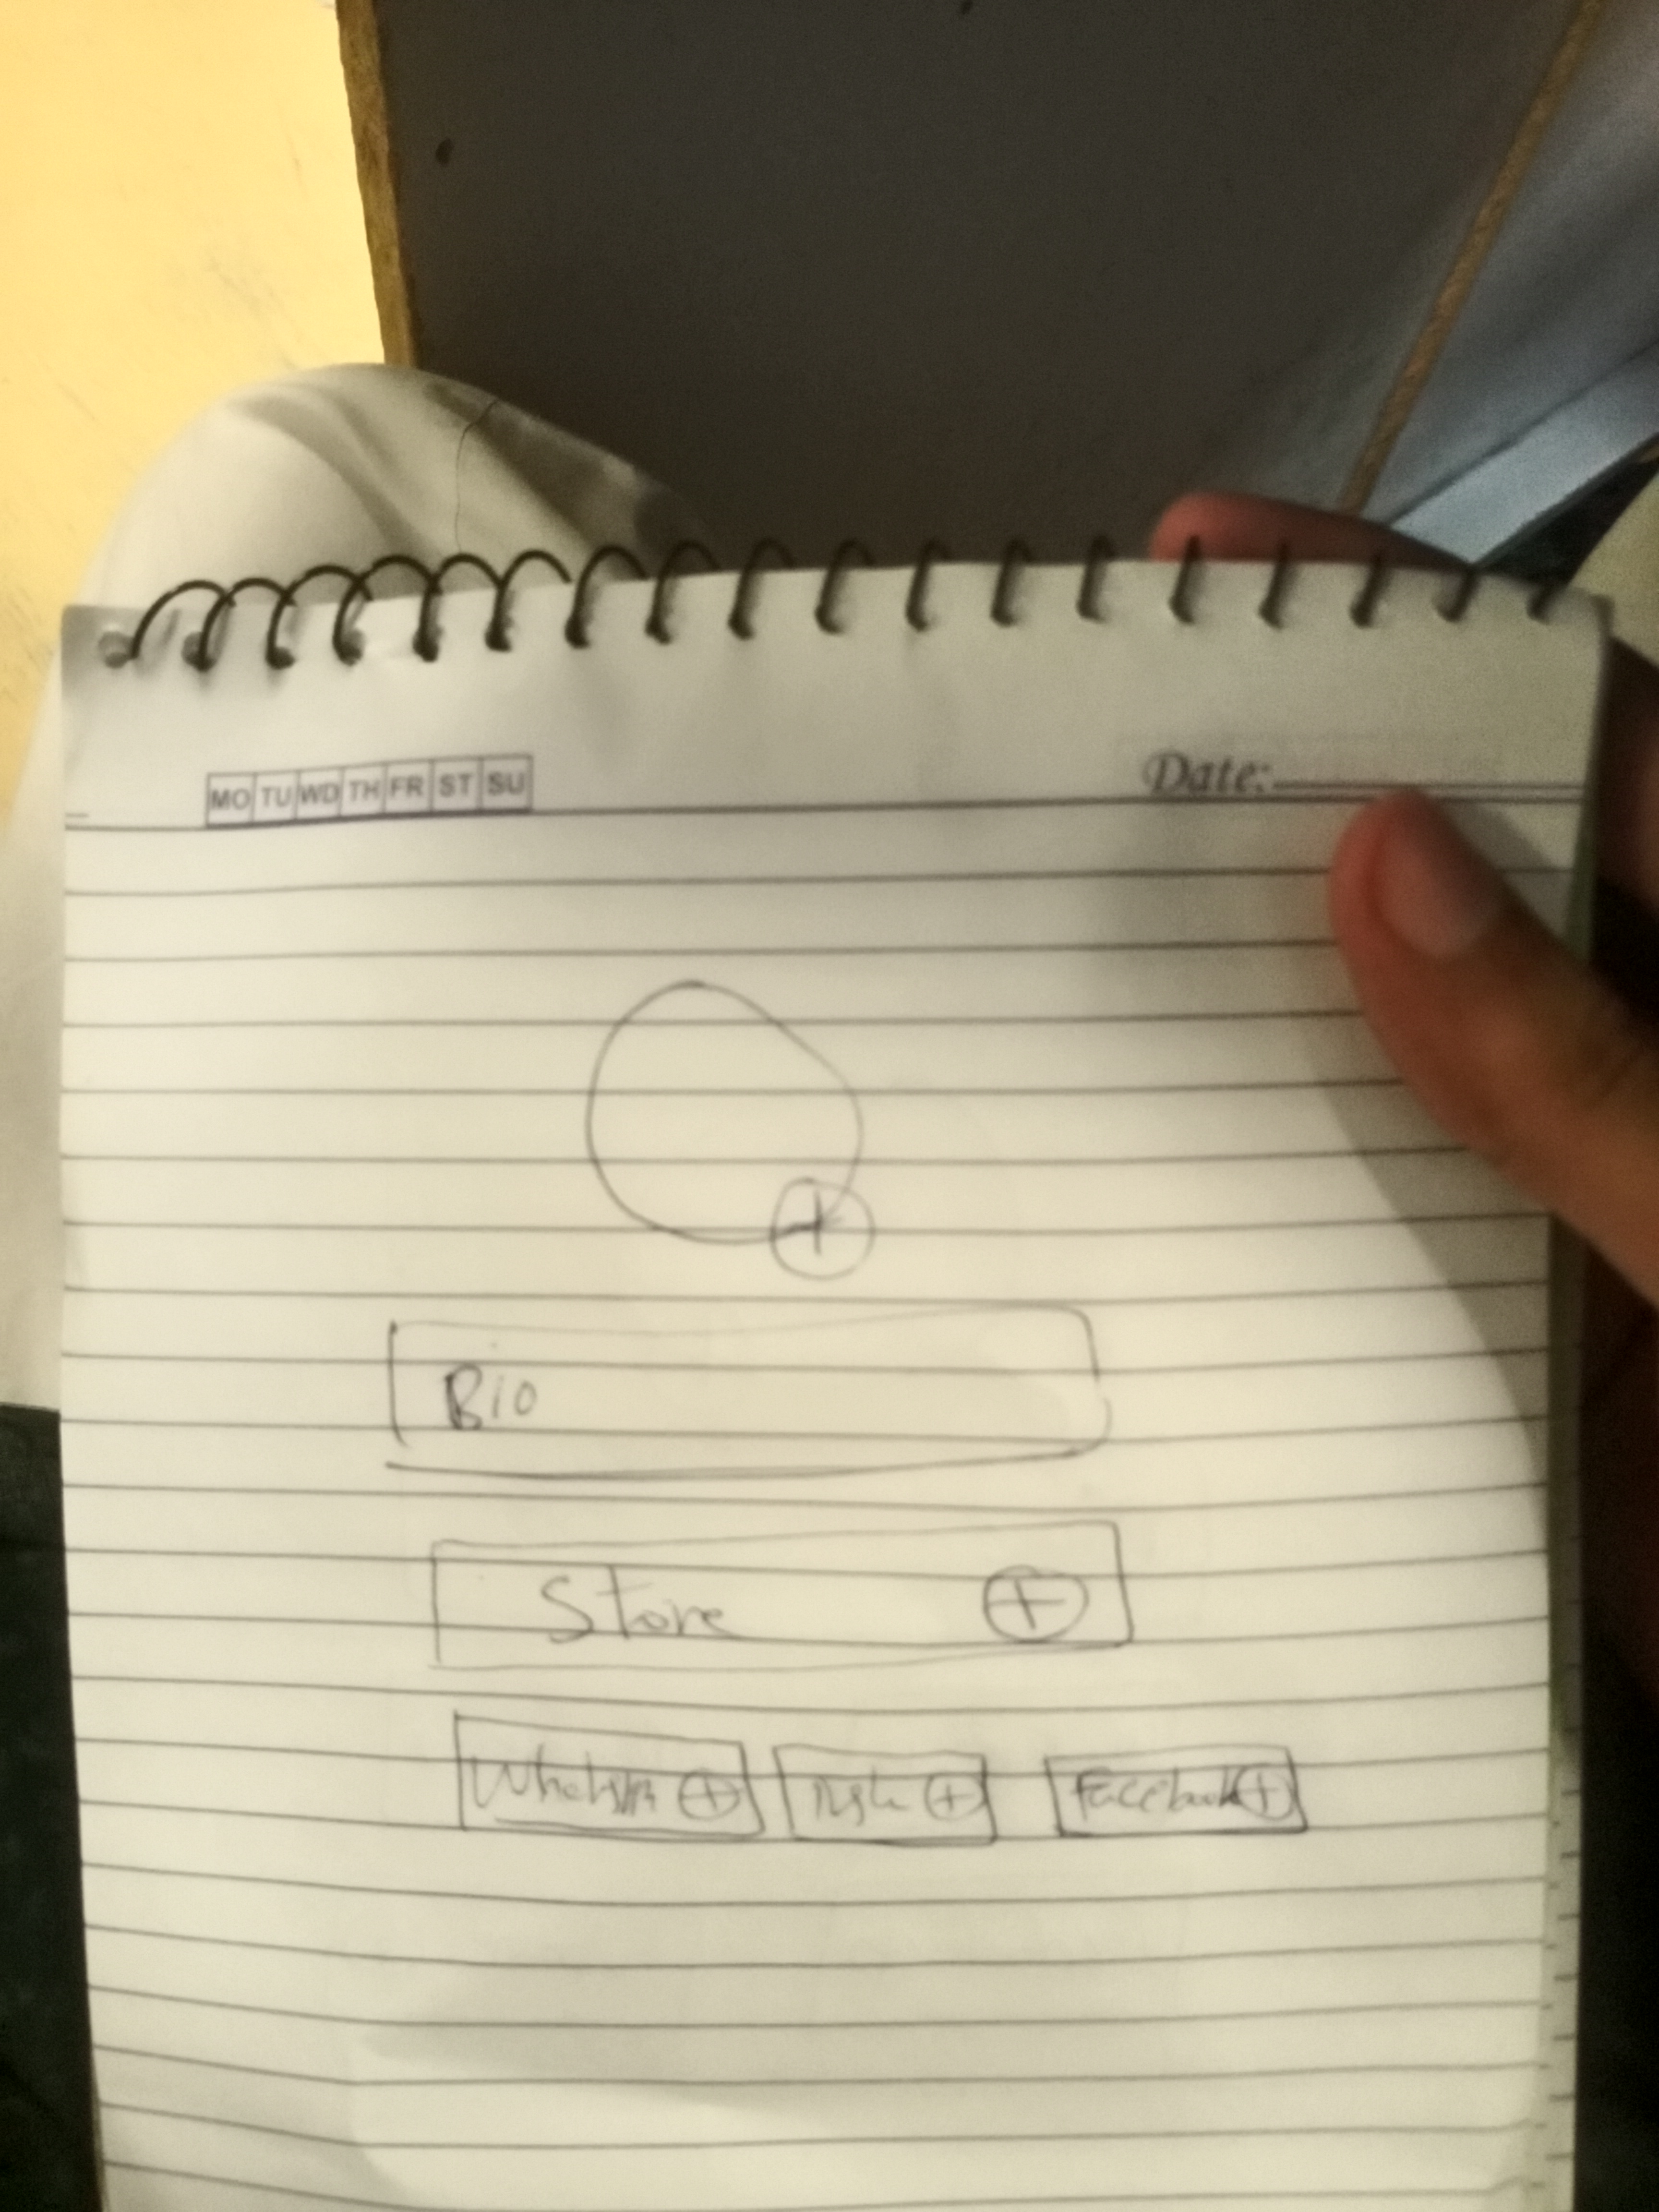 MO TU WD TH FR ST SU Date:
+
Bio
Store +
+ + Facebook +